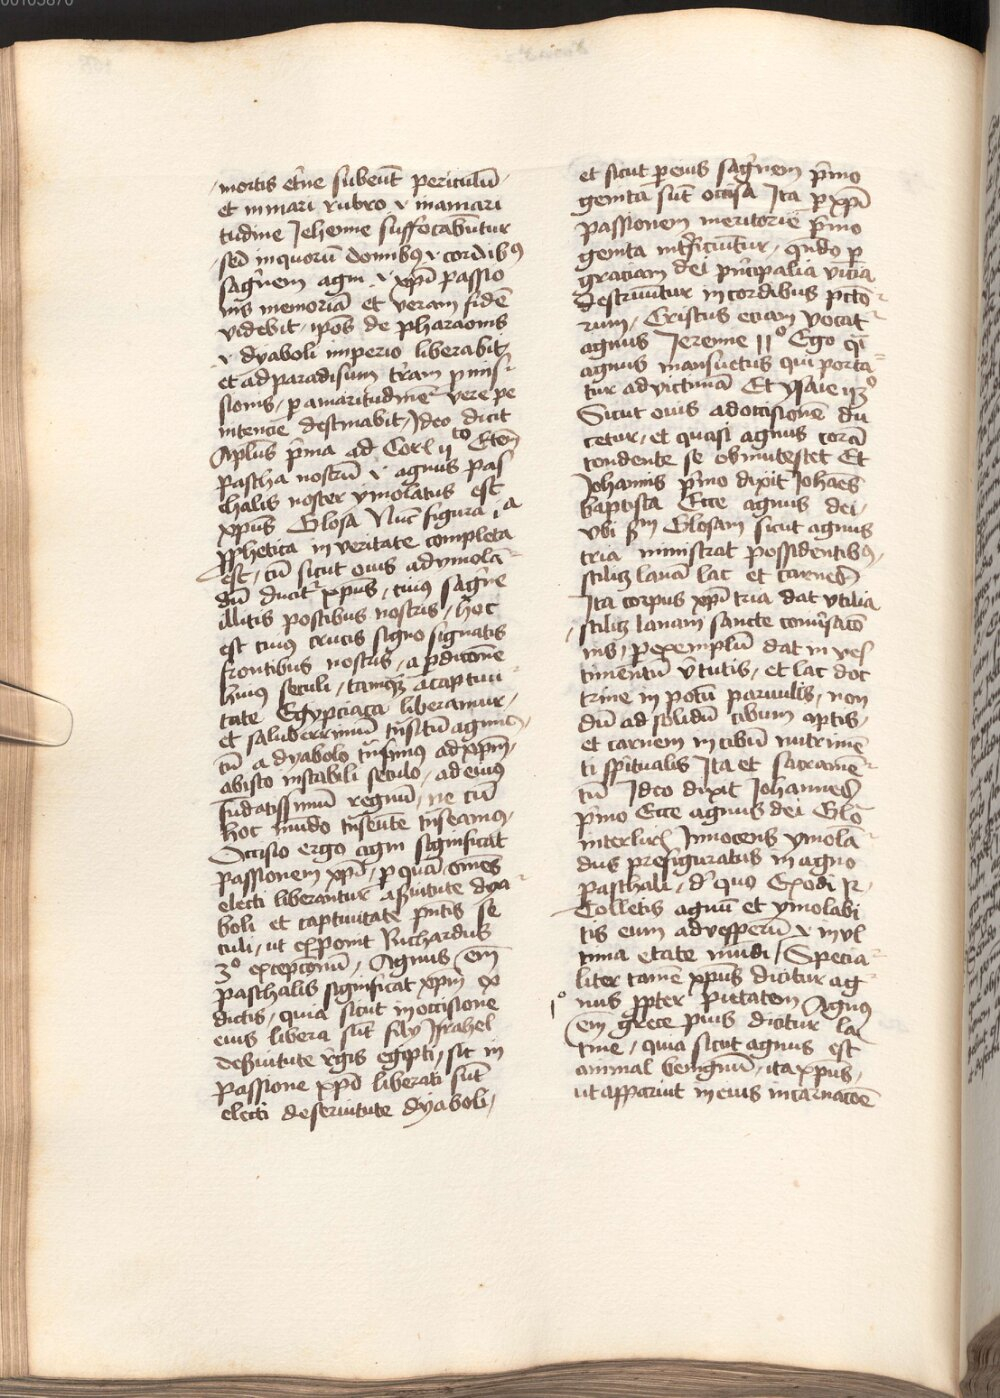 mortis et̄ne subeūt periculū
et in mari rubro ⁊ in amari
tudine Jehenne suffocabūtur
sed in quorū domibꝯ ⁊ cordibꝯ
sag̓nem agni .⁊. xp̄i passio
nis memoriā et veram fidē
videbit, ipōs de pharaonis
.⁊. dyaboli imperio liberabit
et ad paradisum t̓ram p̄mis
sionis, p amaritudinē vere pe
nitencie destinabit, Ideo dicit
Apl̄us p̓ma ad Cor̄ ıı to Etem̄
pascha nostrū .⁊. agnus pas
chalis noster ymolatus est
xp̄us Glosa Nūc figura .ı.a
p̄phetica in veritate completa
est, cū sicut ouis ad ymola
dū ducit̓ xp̄us, cuiꝯ sag̓ne
illitis postibus nostris, hoc
est cuiꝯ crucis signo signatis
frontibus nostris, a p̄dicōne
huiꝯ seculi, tamqꝫ a captiui
tate Egypciaca liberamur,
et saluberrimū tn̄sitū agimꝯ,
cū a dyabolo tn̄simꝯ ad xp̄m̄,
ab isto instabili seculo, ad eiuꝯ
fūdatissimū regnū, ne cū
hoc mūdo tn̄seūte tn̄seamꝯ,
Occisio ergo agni significat
passionem xp̄i, p quā om̄es
electi liberantur a s̓uitute dya
boli et captiuitate p̄ntis se
culi, ut exponit Richardus
3º excepcionū, Agnus em̄
paschalis significat xp̄m ex
dictis, quia sicut in occisione
eius libera sūt filij Israhel
de s̓uitute r̓gis egipti, sic in
passione xp̄i liberati sūt
electi de seruitute dyaboli,
et sicut p eius sag̓nem p̓mo
genita sūt occisa Ita p xp̄i
passionem meritorie p̓mo
genita int̓ficiūtur, qn̄do p
graciam dei p̓ncipalia vicia
destruūtur in cordibus pctō
rum, Cristus eciam vocat̓
agnus Jeremie 11º Ego q̄i
agnus mansuetus qui porta
tur ad victimā Et ysaie
Sicut ouis ad occisionē du
cetur, et quasi agnus corā
tondente se obmutescet Et
Johannis p̓mo dixit Johānes
baptista Ecce agnus dei,
vbi s̄m Glosam sicut agnus
tria ministrat possidentibꝯ,
scilicꝫ lanā lac et carnes
Ita corpus xp̄i tria dat vtilia
, scilicꝫ lanam sancte cōuersacō
nis, p exemplū dat in ves
timentū v̓tutis, et lac doc
trine in potū paruulis, non
dū ad solidū cibum aptis,
et carnem in cibū nutrimē
ti sp̄ualis Ita et sacramē
tū Ideo dixit Johannes
p̓mo Ecce agnus dei Glō
interlī Innocens ymola
dus prefiguratus in agno
paschali, d̓ quo Exodi
Tolletis agnū et ymolabi
tis eum ad vesperū .⁊. in vl
tima etate mūdi, Specia
liter tamē xp̄us dicitur ag
1º nus p̄pter pietatem Agnus
em̄ grece pius dicitur la
tine, quia sicut agnus est
animal benignū, ita xp̄us,
ut apparuit in eius incarnacōe